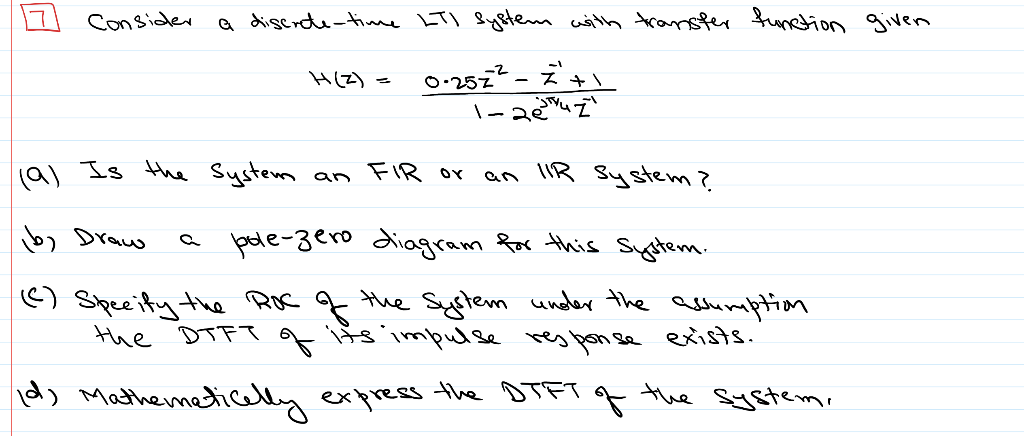 7 Consider a discrete-time LTI system with transfer function given
H(z) = \frac{0.25z^{-2} - z^{-1} + 1}{1 - 2e^{jπ/4} z^{-1}}
(a) Is the system an FIR or an IIR system?
(b) Draw a pole-zero diagram for this system.
(c) Specify the ROC of the system under the assumption
the DTFT of its impulse response exists.
(d) Mathematically express the DTFT of the system.